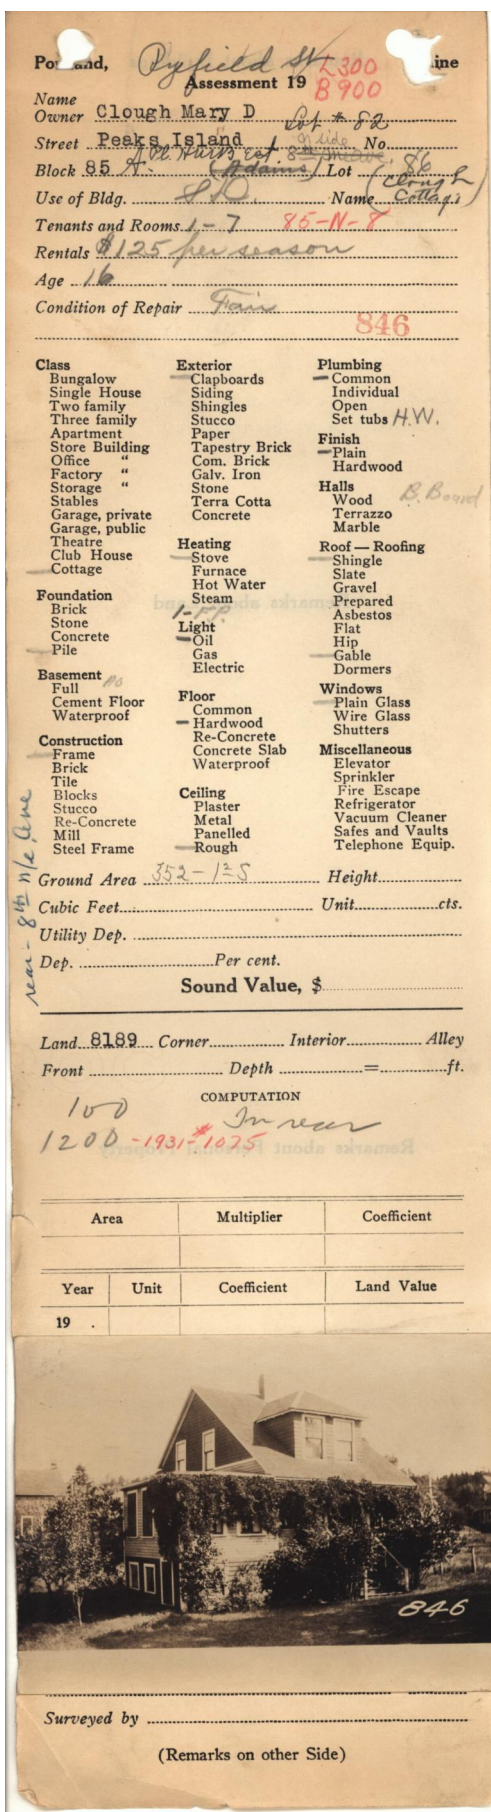 Portland, Ryefield St. Maine
L300
Assessment 19 B900
Name
Owner Clough Mary D Lot # 82
Street Peaks Island N side No
Pl Hurb Est 8th
Block 85 A. (Adams) Lot 86
Use of Bldg. S D. Name (Clough Cottage)
Tenants and Rooms 1-7 85-N-8
Rentals $125 per season
Age 16
Condition of Repair Fair
846
Class
Bungalow
Single House
Two family
Three family
Apartment
Store Building
Office "
Factory "
Storage "
Stables
Garage, private
Garage, public
Theatre
Club House
Cottage
Foundation
Brick
Stone
Concrete
Pile
Basement
Full no
Cement Floor
Waterproof
Construction
Frame
Brick
Tile
Blocks
Stucco
Re-Concrete
Mill
Steel Frame
Exterior
Clapboards
Siding
Shingles
Stucco
Paper
Tapestry Brick
Com. Brick
Galv. Iron
Stone
Terra Cotta
Concrete
Heating
Stove
Furnace
Hot Water
Steam
1-FP.
Light
Oil
Gas
Electric
Floor
Common
Hardwood
Re-Concrete
Concrete Slab
Waterproof
Ceiling
Plaster
Metal
Panelled
Rough
Plumbing
Common
Individual
Open
Set tubs H.W.
Finish
Plain
Hardwood
Halls
Wood B. Board
Terrazzo
Marble
Roof — Roofing
Shingle
Slate
Gravel
Prepared
Asbestos
Flat
Hip
Gable
Dormers
Windows
Plain Glass
Wire Glass
Shutters
Miscellaneous
Elevator
Sprinkler
Fire Escape
Refrigerator
Vacuum Cleaner
Safes and Vaults
Telephone Equip.
rear - 8th n/e Ave
Ground Area 352-1½ S Height
Cubic Feet Unit cts.
Utility Dep.
Dep. Per cent.
Sound Value, $
Land 8189 Corner Interior Alley
Front Depth = ft.
COMPUTATION
100 In rear
1200 -1931-#1075
Area Multiplier Coefficient
Year Unit Coefficient Land Value
19 .
846
Surveyed by
(Remarks on other Side)